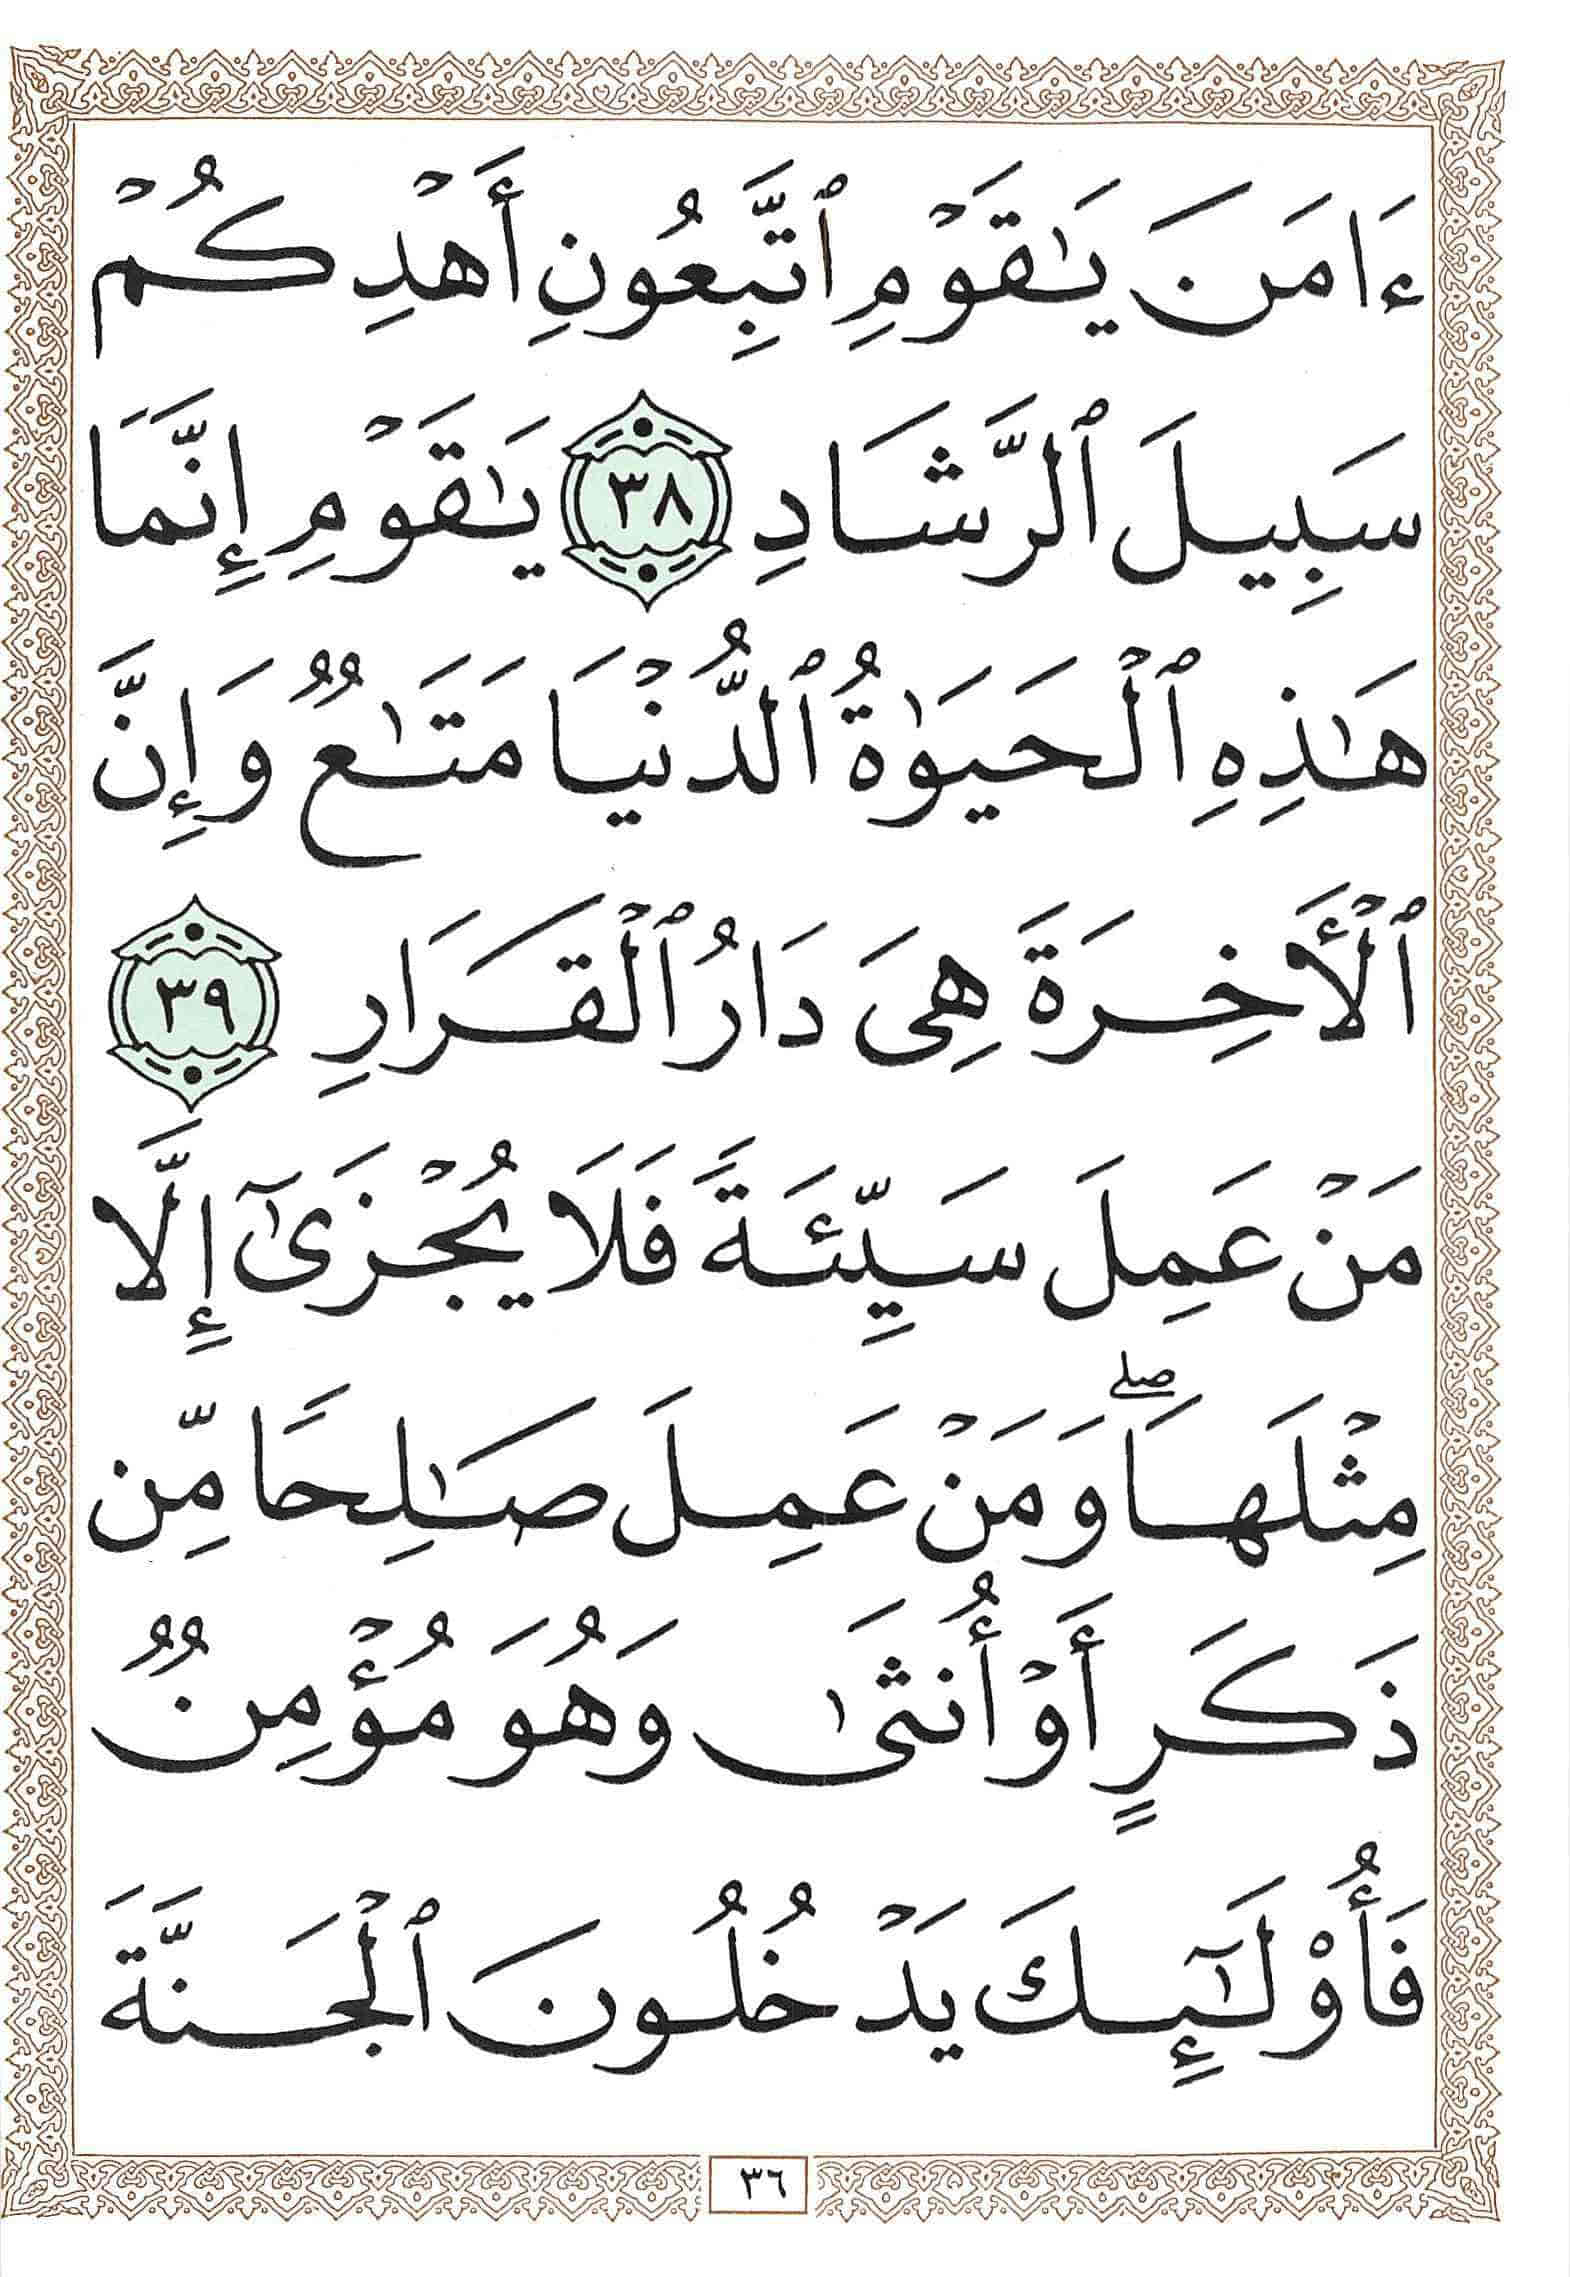 ءَامَنَ يَٰقَوۡمِ ٱتَّبِعُونِ أَهۡدِكُمۡ
سَبِيلَ ٱلرَّشَادِ ٣٨ يَٰقَوۡمِ إِنَّمَا
هَٰذِهِ ٱلۡحَيَوٰةُ ٱلدُّنۡيَا مَتَٰعٌ وَإِنَّ
ٱلۡأَخِرَةَ هِيَ دَارُ ٱلۡقَرَارِ ٣٩
مَنۡ عَمِلَ سَيِّئَةً فَلَا يُجۡزَىٰٓ إِلَّا
مِثۡلَهَاۖ وَمَنۡ عَمِلَ صَٰلِحًا مِّن
ذَكَرٍ أَوۡ أُنثَىٰ وَهُوَ مُؤۡمِنٌ
فَأُوْلَٰٓئِكَ يَدۡخُلُونَ ٱلۡجَنَّةَ
٣٦